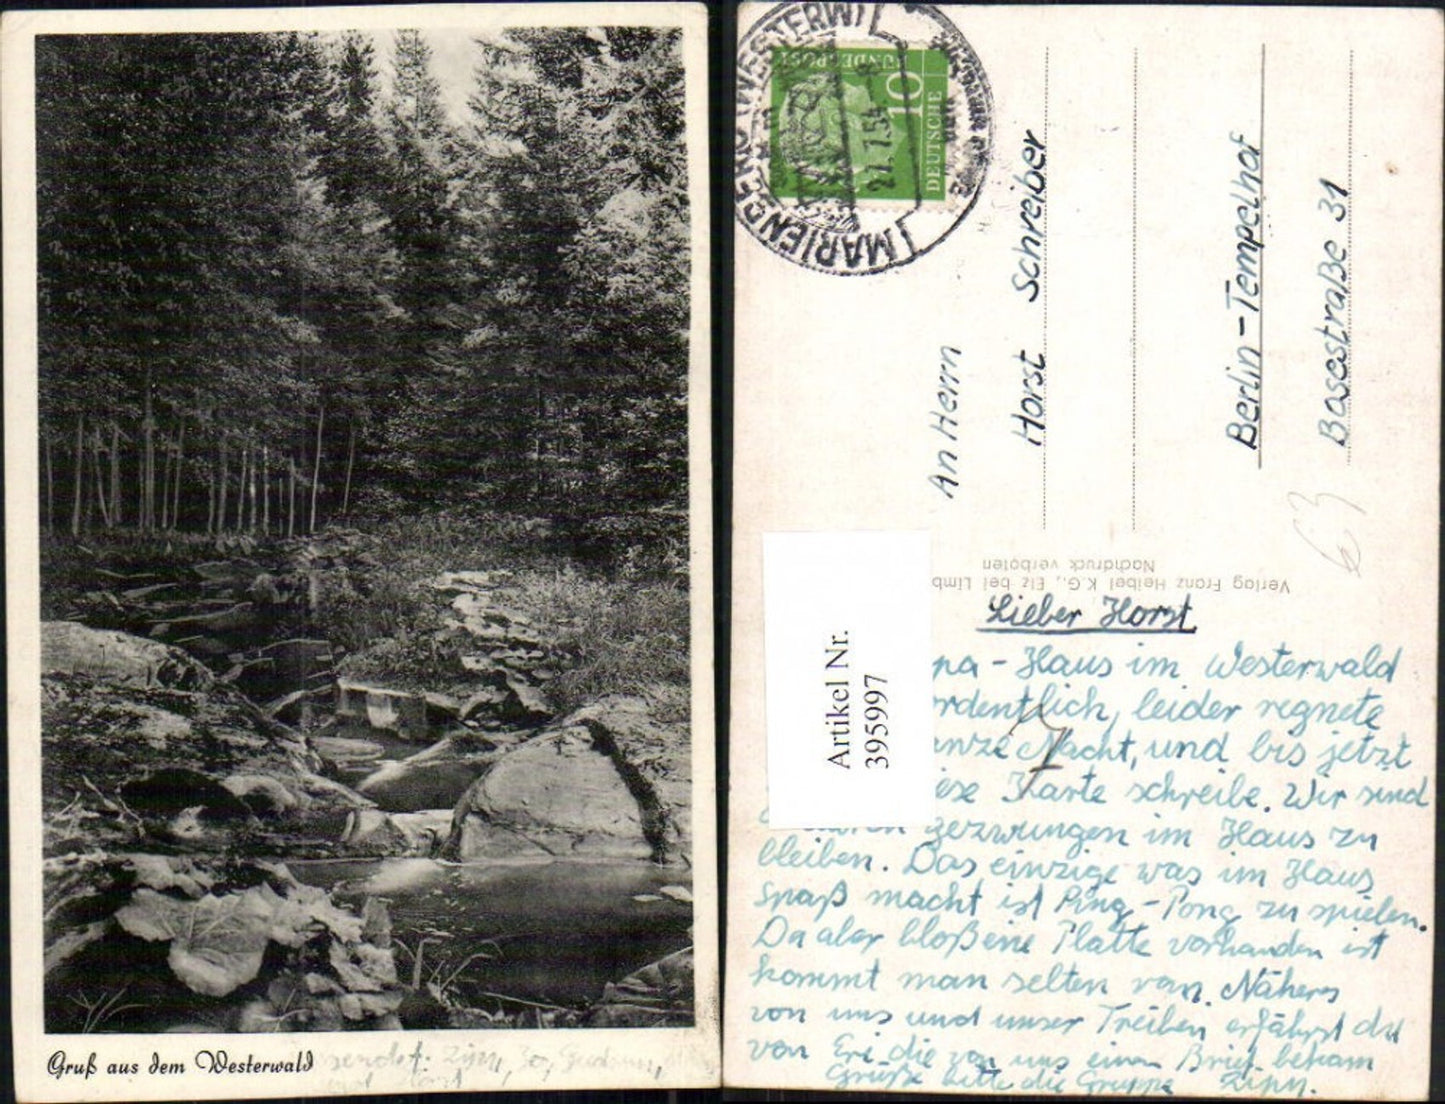 Gruß aus dem Westerwald
MARIENBERG (WESTERW)
21.7.54
DEUTSCHE
BUNDESPOST
10
An Herrn
Horst Schreiber
Berlin-Tempelhof
Bosestraße 31
63
Verlag Franz Heibel K.G., Elz bei Limb
Nachdruck verboten
Artikel Nr.
395997
Lieber Horst
pa-Haus im Westerwald
ordentlich, leider regnete
anze Nacht, und bis jetzt
iese Karte schreibe. Wir sind
gezwungen im Haus zu
bleiben. Das einzige was im Haus
spaß macht ist Ping-Pong zu spielen.
Da aber bloß eine Platte vorhanden ist
kommt man selten ran. Näheres
von uns und unser Treiben erfährst du
von Eri die von uns einen Brief bekam
Grüße bitte die Gruppe